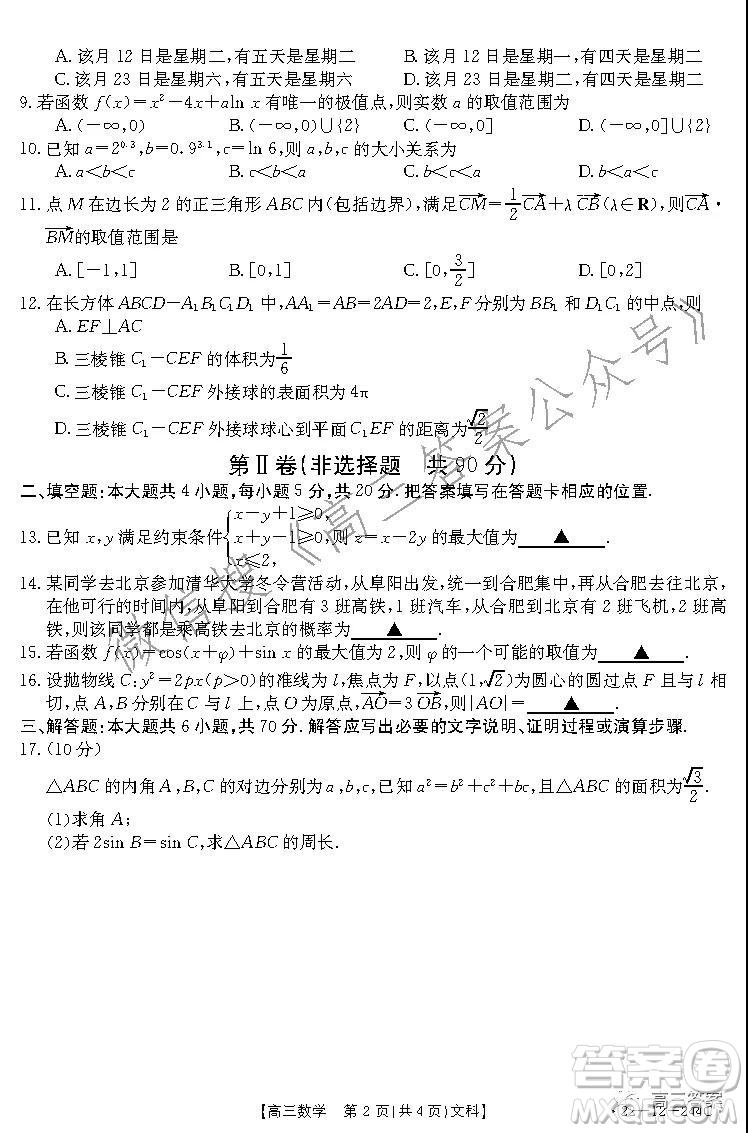 A. 该月 12 日是星期二,有五天是星期二 B. 该月 12 日是星期一,有四天是星期二
C. 该月 23 日是星期六,有五天是星期六 D. 该月 23 日是星期二,有四天是星期二
9. 若函数 f(x)=x²-4x+aln x 有唯一的极值点,则实数 a 的取值范围为
A. (-∞,0) B. (-∞,0)∪{2} C. (-∞,0] D. (-∞,0]∪{2}
10. 已知 a=2^{0.3},b=0.9^{3.1},c=ln 6,则 a,b,c 的大小关系为
A. a<b<c B. c<b<a C. b<a<c D. b<c<a
11. 点 M 在边长为 2 的正三角形 ABC 内(包括边界),满足\overrightarrow{CM}=\frac{1}{2}\overrightarrow{CA}+λ\overrightarrow{CB}(λ∈R),则\overrightarrow{CA}·
\overrightarrow{BM}的取值范围是
A. [-1,1] B. [0,1] C. [0,\frac{3}{2}] D. [0,2]
12. 在长方体 ABCD-A₁B₁C₁D₁ 中,AA₁=AB=2AD=2,E,F 分别为 BB₁ 和 D₁C₁ 的中点,则
A. EF⊥AC
B. 三棱锥 C₁-CEF 的体积为\frac{1}{6}
C. 三棱锥 C₁-CEF 外接球的表面积为 4π
D. 三棱锥 C₁-CEF 外接球球心到平面 C₁EF 的距离为\frac{\sqrt{2}}{2}
第Ⅱ卷(非选择题 共 90 分)
二、填空题:本大题共 4 小题,每小题 5 分,共 20 分.把答案填写在答题卡相应的位置.
13. 已知 x,y 满足约束条件{x-y+1≥0, x+y-1≥0, x≤2, 则 z=x-2y 的最大值为 ▲ .
14. 某同学去北京参加清华大学冬令营活动,从阜阳出发,统一到合肥集中,再从合肥去往北京,
在他可行的时间内,从阜阳到合肥有 3 班高铁,1 班汽车,从合肥到北京有 2 班飞机,2 班高
铁,则该同学都是乘高铁去北京的概率为 ▲ .
15. 若函数 f(x)=cos(x+φ)+sin x 的最大值为 2,则 φ 的一个可能的取值为 ▲ .
16. 设抛物线 C:y²=2px(p>0)的准线为 l,焦点为 F,以(1,√2)为圆心的圆过点 F 且与 l 相
切,点 A,B 分别在 C 与 l 上,点 O 为原点,\overrightarrow{AO}=3\overrightarrow{OB},则|AO|= ▲ .
三、解答题:本大题共 6 小题,共 70 分.解答应写出必要的文字说明、证明过程或演算步骤.
17. (10 分)
△ABC 的内角 A,B,C 的对边分别为 a,b,c,已知 a²=b²+c²+bc,且△ABC 的面积为\frac{\sqrt{3}}{2}.
(1)求角 A;
(2)若 2sin B=sin C,求△ABC 的周长.
微信搜《高三答案公众号》
答案圈
高三答案
【高三数学 第 2 页(共 4 页)文科】
MXQE.COM